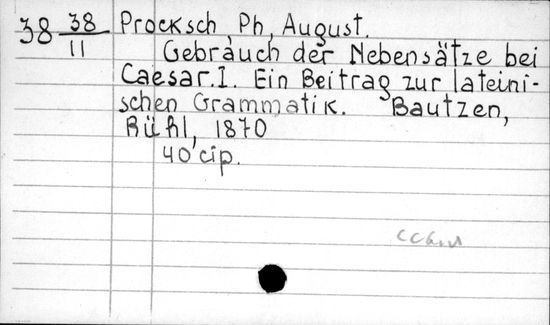 38 38/11 Procksch, Ph, August.
Gebrauch der Nebensätze bei
Caesar. I. Ein Beitrag zur lateini-
schen Grammatik. Bautzen,
Rühl, 1870
40 cip.